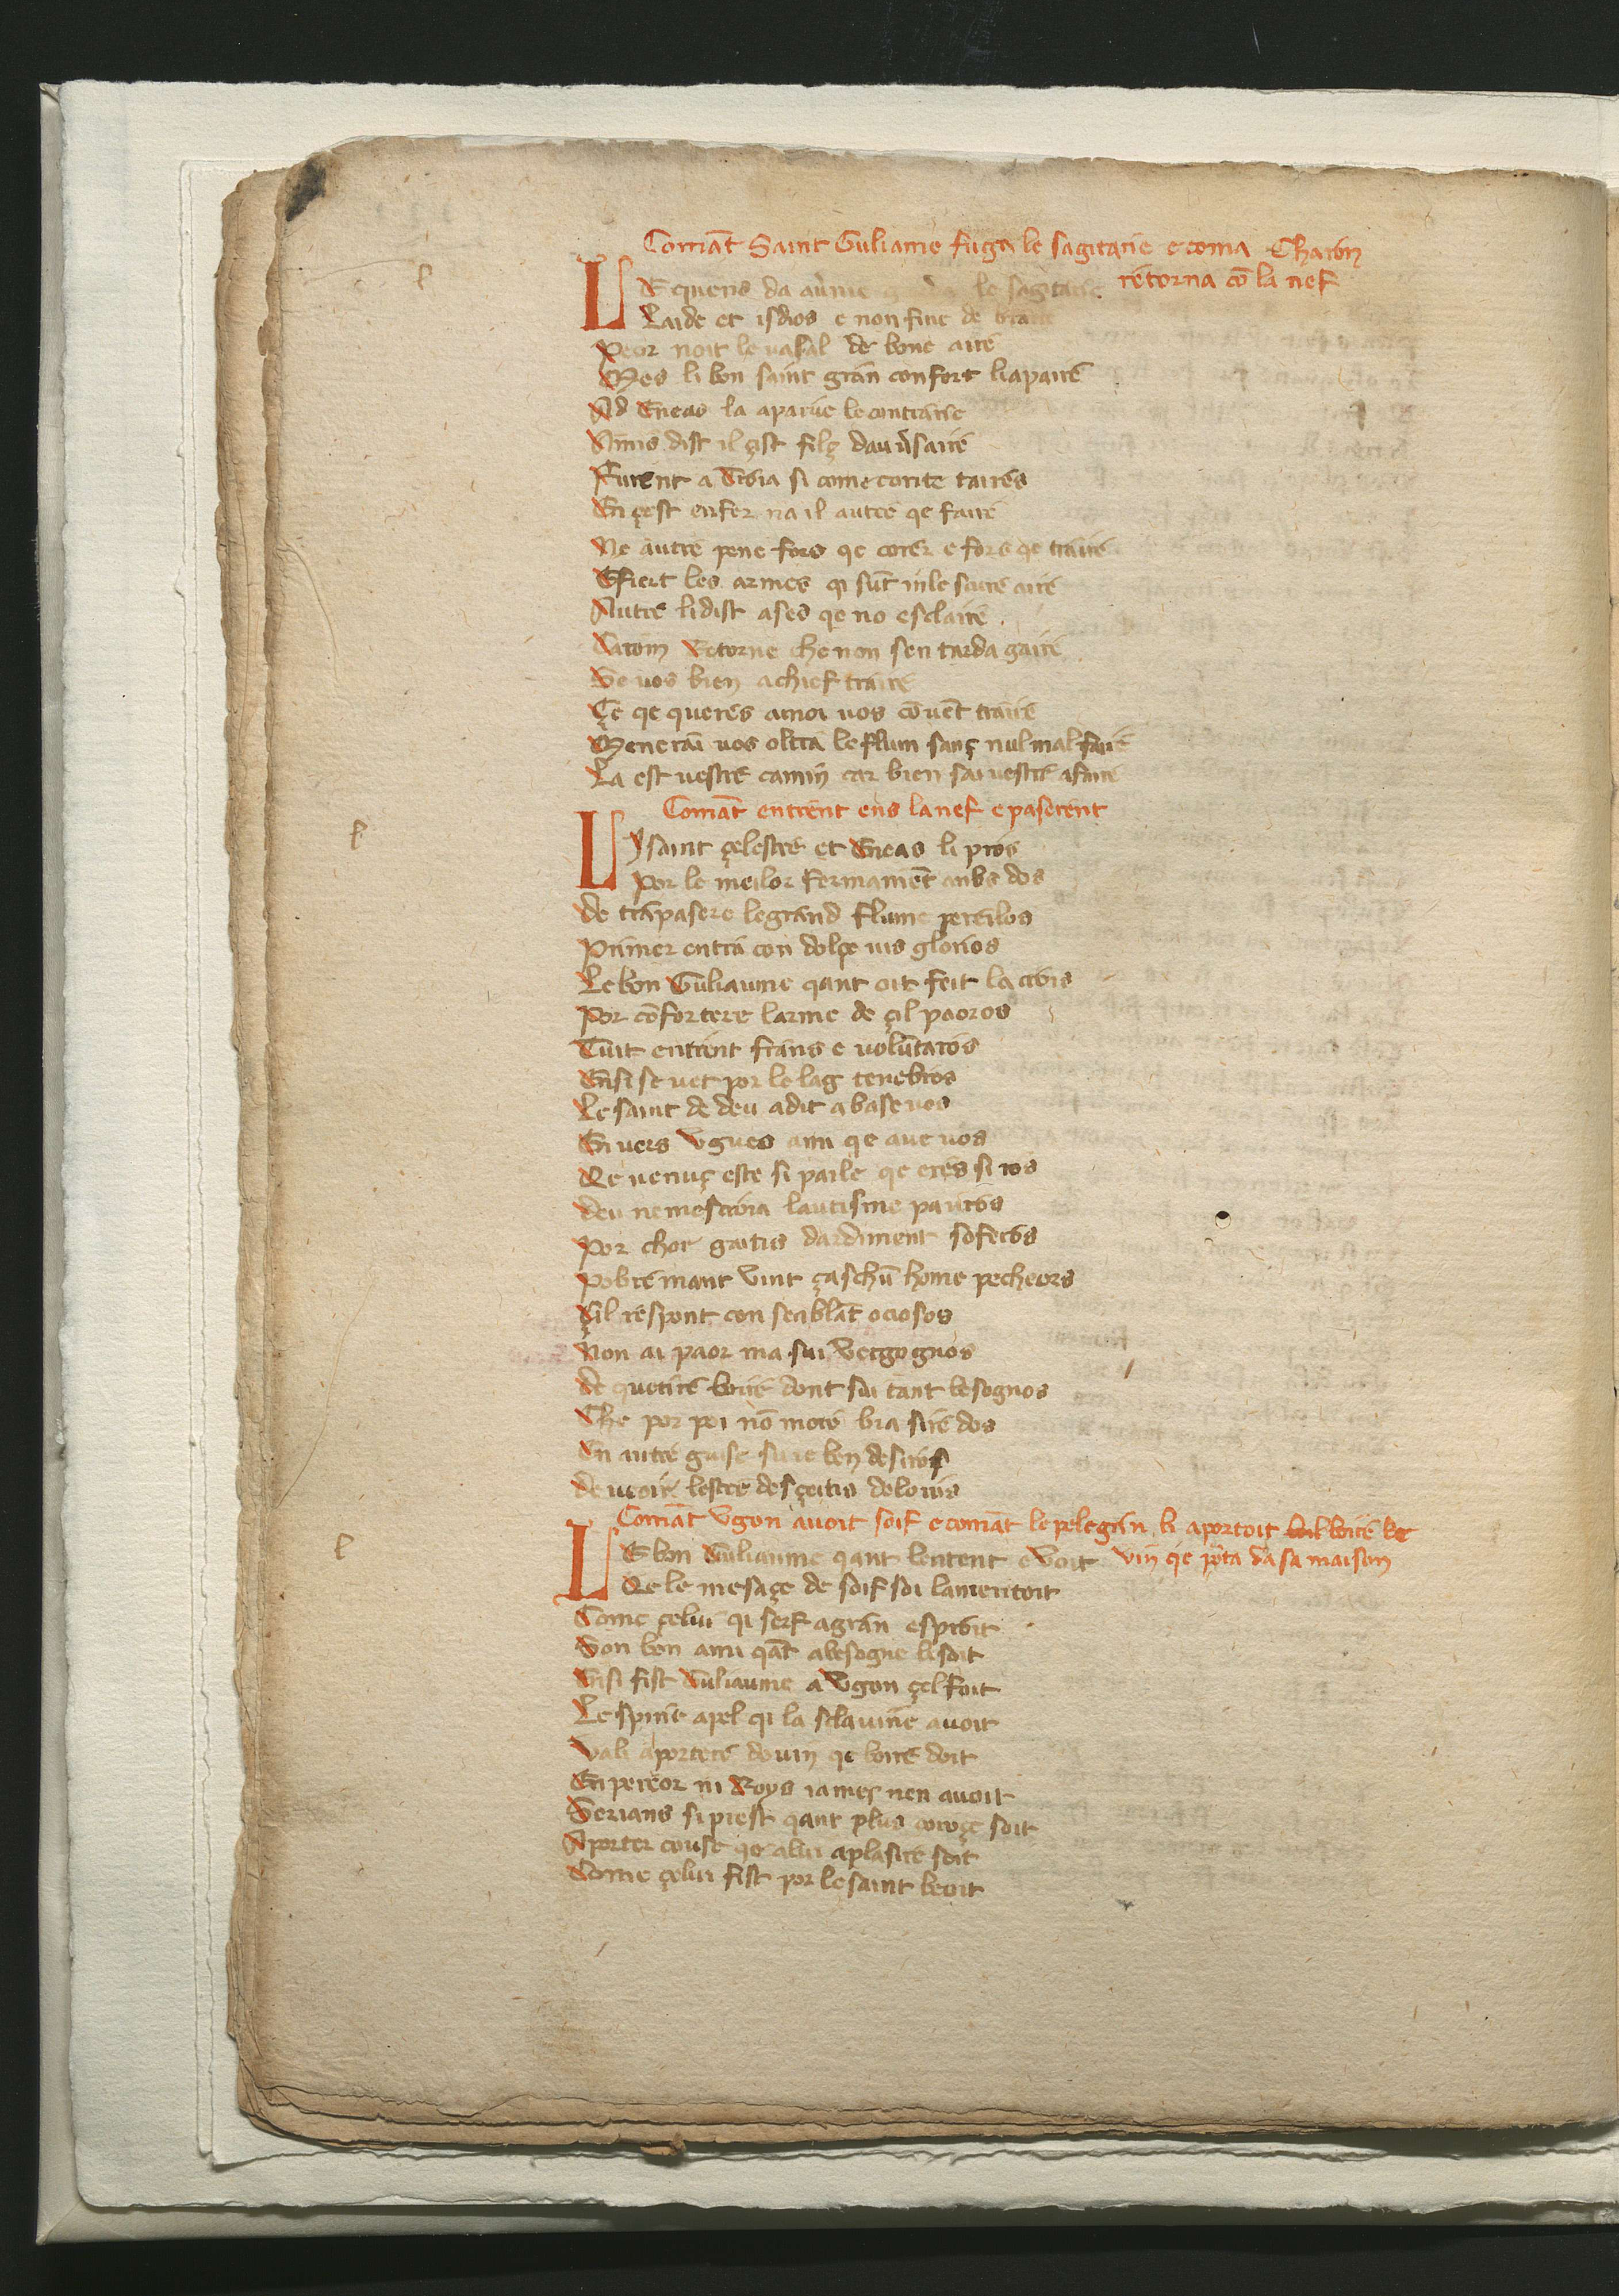 Comāt Saint Guliame fuga le sagitarie e coma Charon
retorna cō la nef
LE quens da au'nie le sagitarie
Laide et isdios e non fine de braire
Peor noit le vasal de bone aire
Mes li bon saint gran confort li apaire
Ad Eneas la aparue le contrarie
Nimis dist il çist filç dau'saire
Furent a Troia si come conte taires
En çest enfer na il autre qe faire
Ne autre pene fors qe corer e fors qe traire
E fiert les armes qi sūt in le saire
Autre li dist ases qe no esclaire
Caron retorne che non sen tarda gaire
Se vos bien a chief traire
Çe qe queres a moi vos cōuēt traire
Menerai vos oltra le flum sanç nul mal faire
La est vestre camin car bien sai vestre afaire
Comāt entrent ens la nef e paserent
LY saint çelestre et Eneas li pros
Por le meilor fermamēt anbs dos
de trapasere le grand flume pereilos
Primer entra con dolçe vis glorios
Le bon Guliaume qant oit feit la crois
Por cōfortere larme de çil paoros
Tuit entrent frans e volūtaros
Ensi se vet por le lag tenebros
Le saint de deu a dit a base vos
En vers Vgues ami qe aue vos
Qe venuç este si parle qe eres si ros
deu ne mescroia lautisme pauros
Por chor gratis dardiment sofreos
Pobremant vint çaschū home pecheors
Çil respont con senblāt ociosos
Non ai paor ma sui vergognos
de querire boire dont sui tant besognos
Che por poi nō more bia sire dos
En autre guise suie ben desiros
de veoir lestre des çeitis doloros
Comāt Vgon avoit soif e comāt le pelegrin li aportoit boire de
vin qe pota da sa maison
LE bon Guliaume qant lentent e voit
Qe le mesaçe de soif soi lamentoit
Come çelui qi serf a gran esproit
Son bon ami qāt a besogne li soit
Ensi fist Guliaume a Vgon çel foit
Le spirit apel qi la sclavine avoit
Vali aportere do vin qe boire doit
Enpereor ni Roys iames nen avoit
Serians si prest qant plus coroçe soit
Aporter couse qe a lui a plasire soit
Come çelui fist por le saint beoit